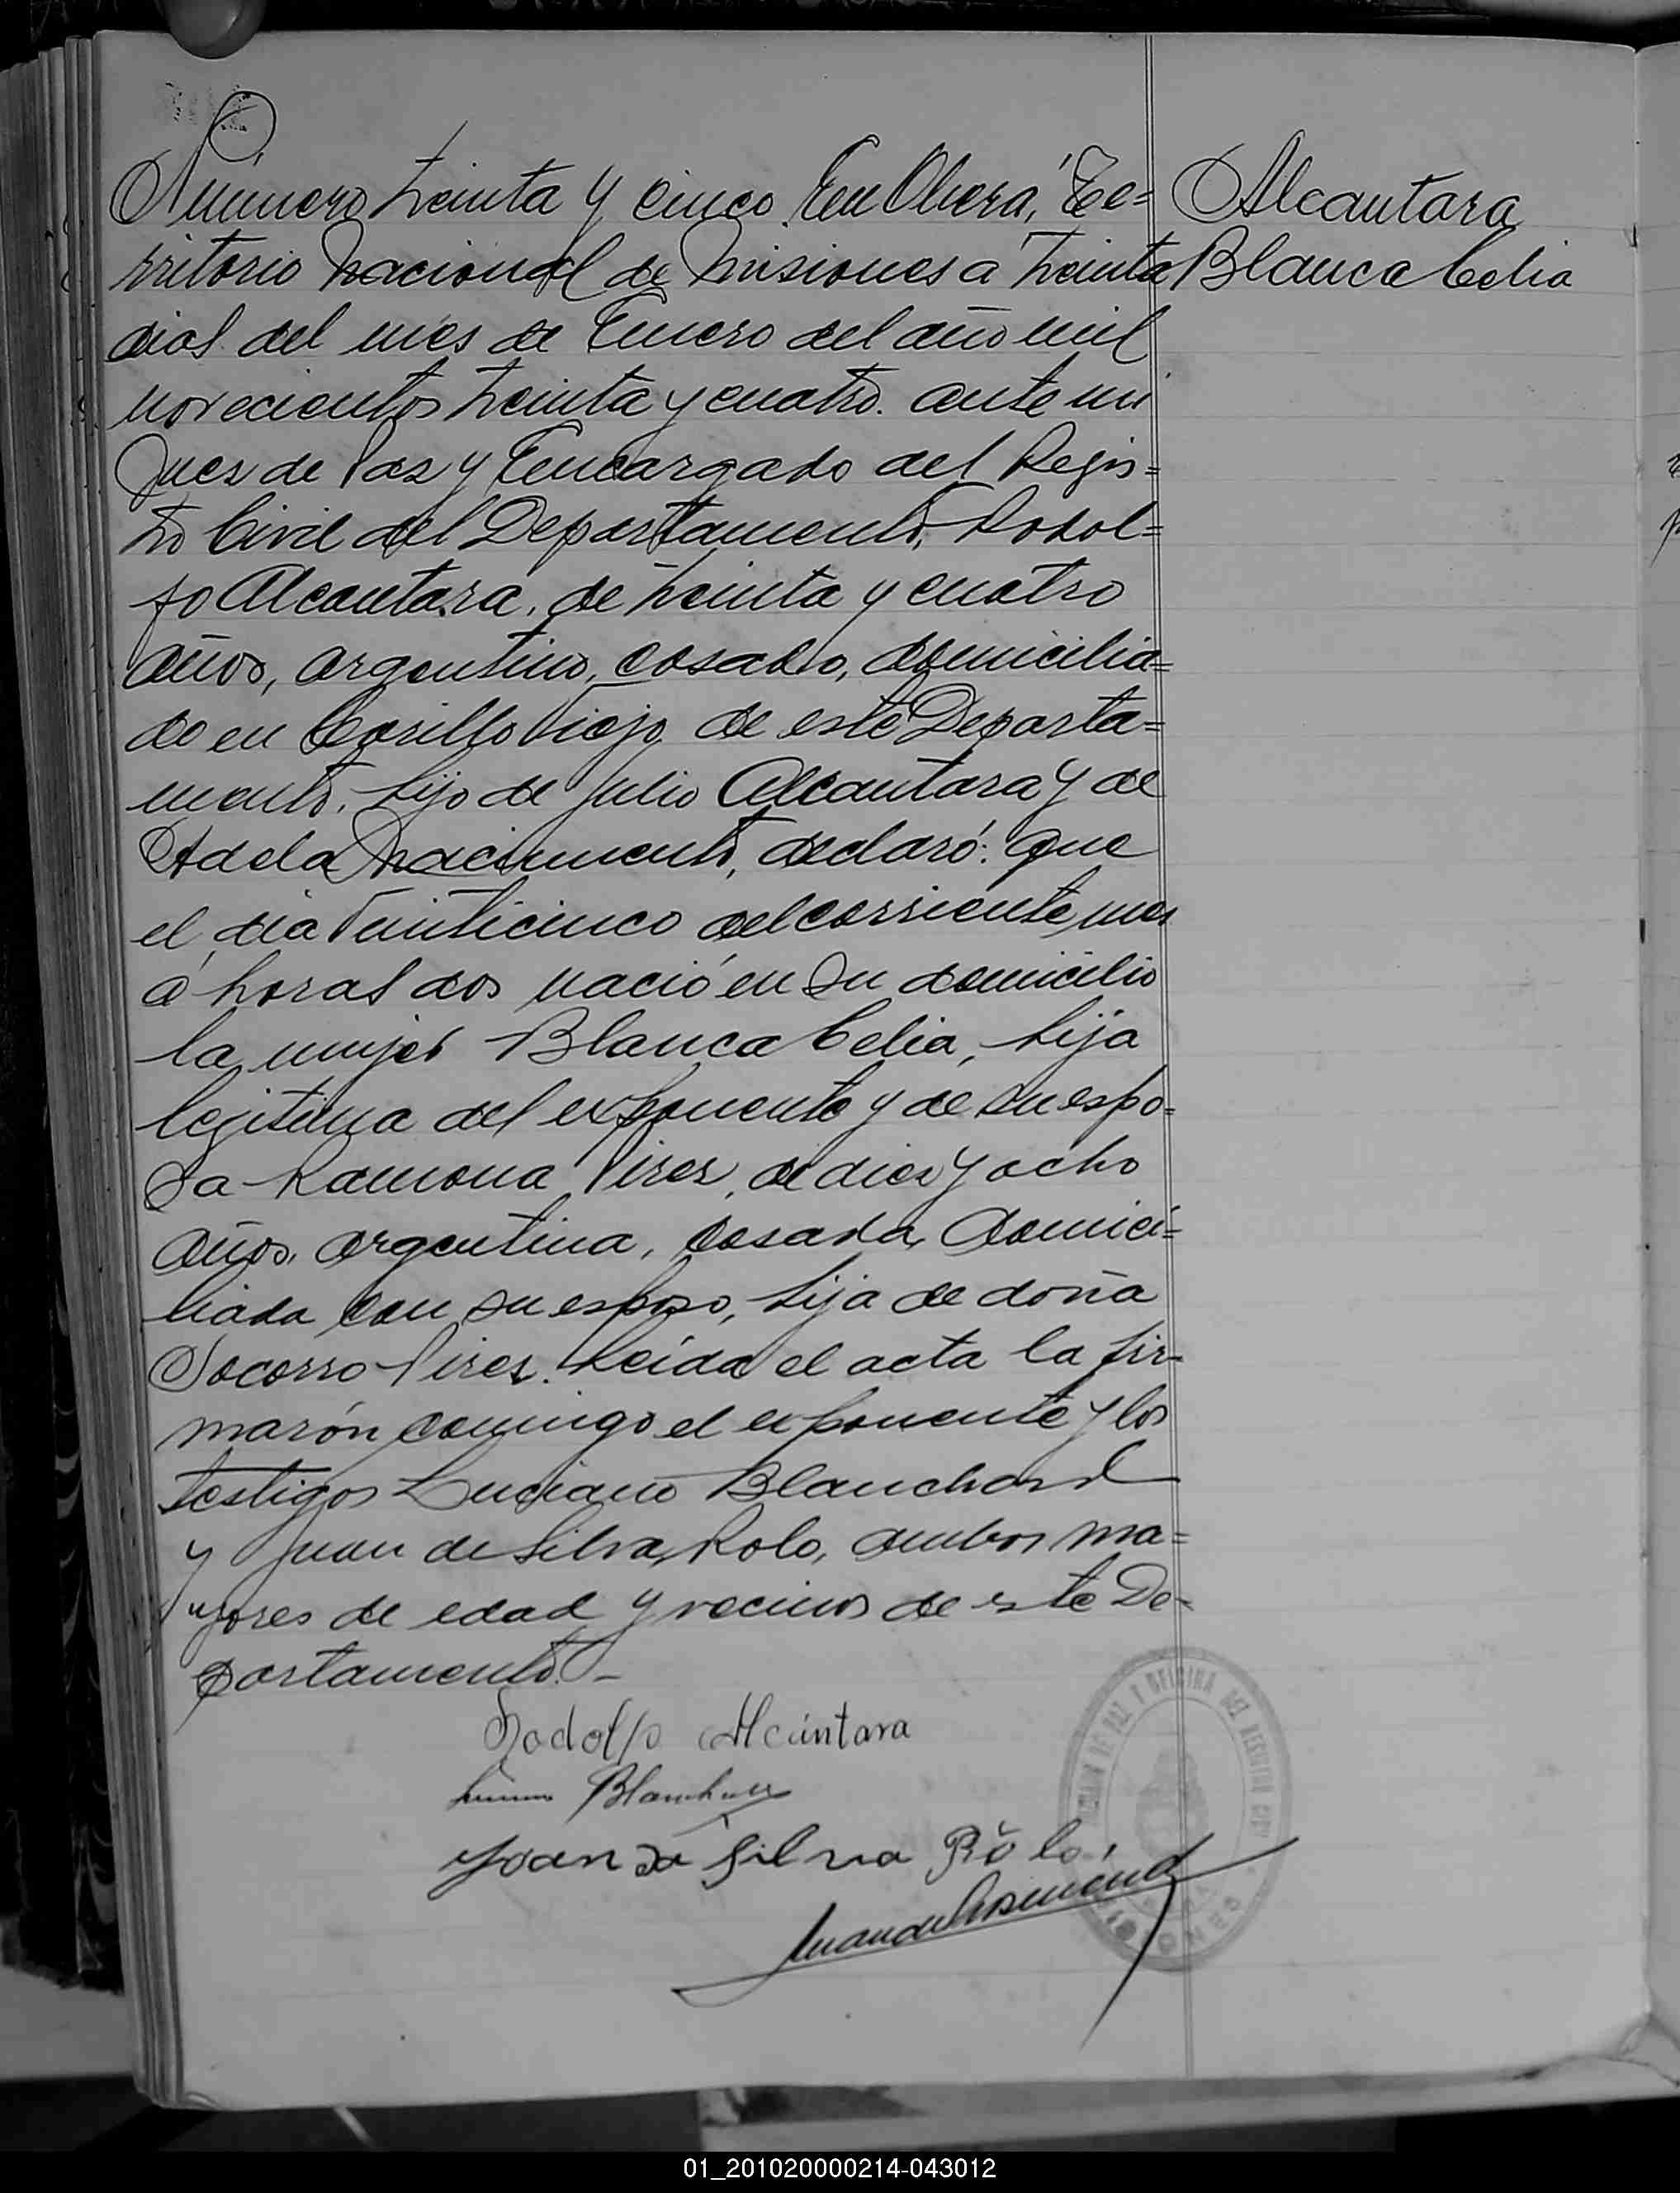 Número treinta y cinco. En Obera, Te=
rritorio Nacional de Misiones a treinta
dias del mes de Enero del año mil
novecientos treinta y cuatro. ante mi
Juez de Paz y Encargado del Regis=
tro Civil del Departamento, Rodol=
fo Alcantara, de treinta y cuatro
años, argentino, casado, domicilia=
do en Cerillo Viejo de este Departa=
mento, hijo de Julio Alcantara y de
Adela Nacimento, declaró: que
el dia Veinticinco del corriente mes
á horas dos nació en su domicilio
la mujer Blanca Celia, hija
legitima del exponente y de su espo=
sa Ramona Pires, de diez y ocho
años, argentina, casada, domici=
liada con su esposo, hija de doña
Socorro Pires. Leida el acta la fir-
marón conmigo el exponente y los
testigos Luciano Blanchard
y Juan de Silva Rolo, ambos ma=
yores de edad y vecinos de este De-
partamento. -
Alcantara
Blanca Celia
Rodolfo Alcántara
Joan da Silva Rólo,
MISIONES
01_201020000214-043012